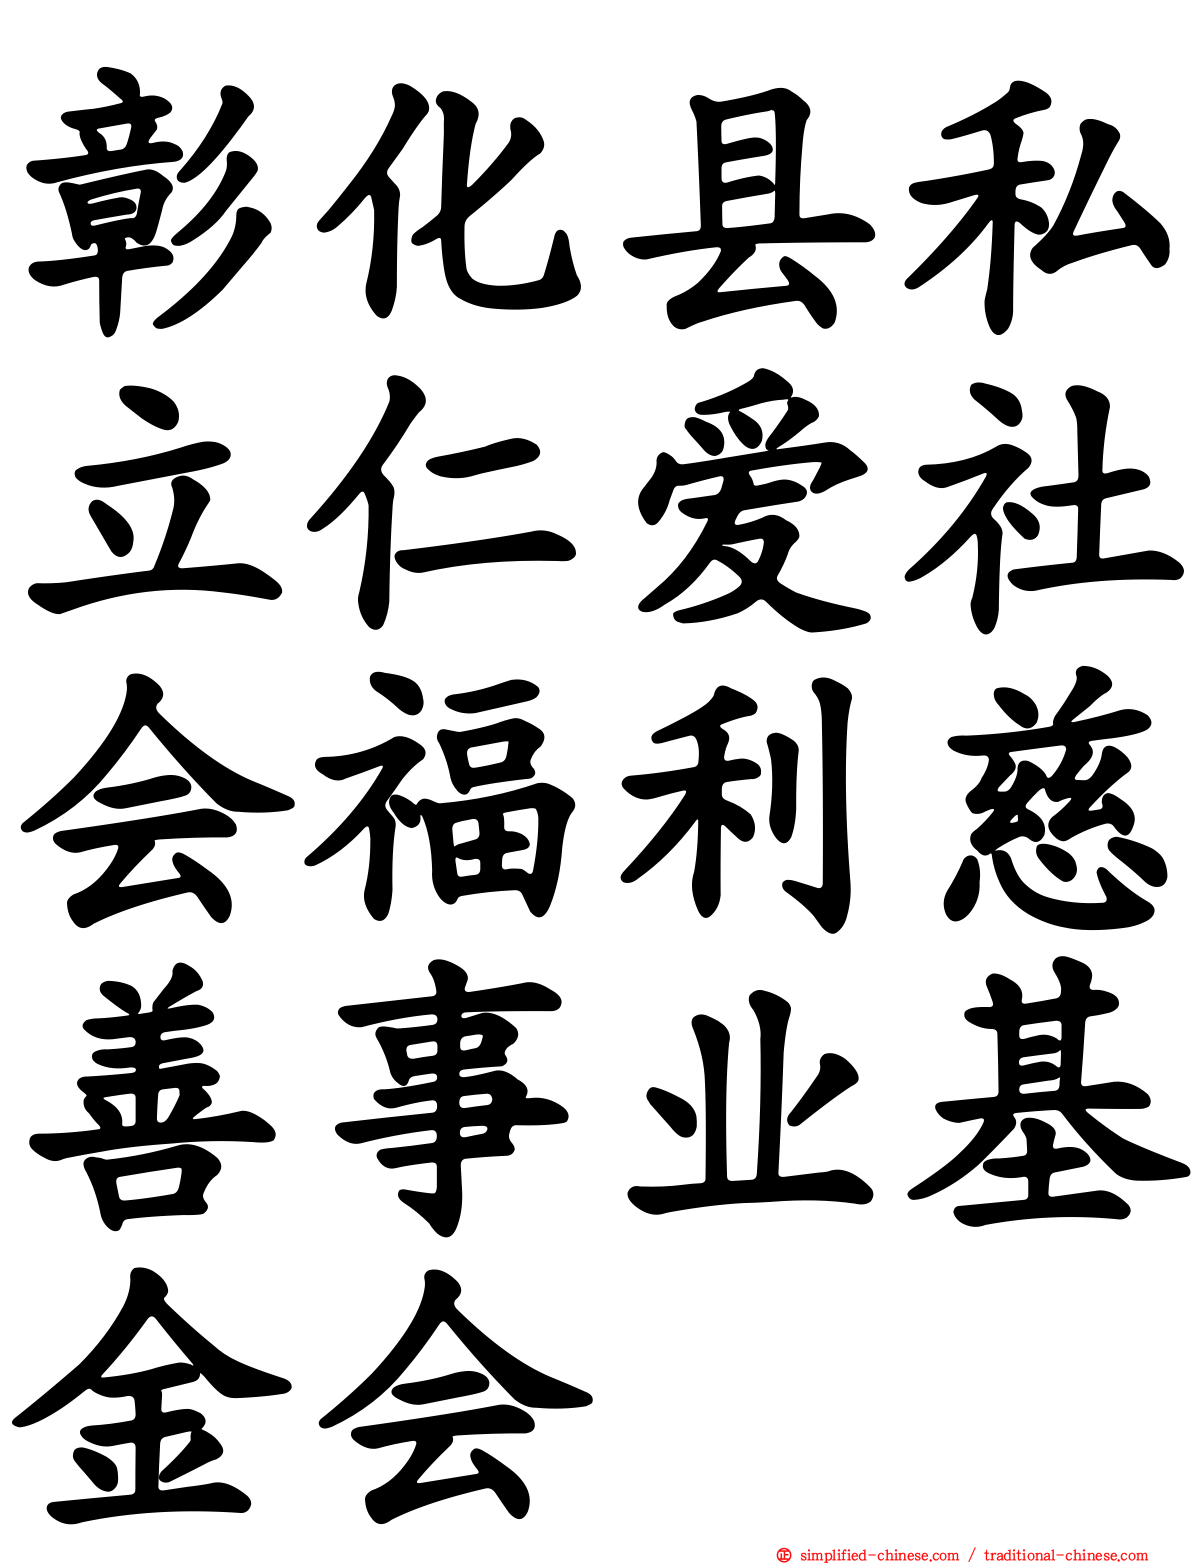 彰化县私
立仁爱社
会福利慈
善事业基
金会
㊣ simplified-chinese.com / traditional-chinese.com